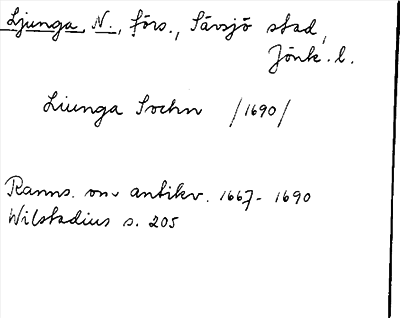 Ljunga, N., förs., Sävsjö stad,
Jönk. l.
Liunga Sochn /1690/
Ranns. o antikv. 1667-1690
Wilstadius s. 205